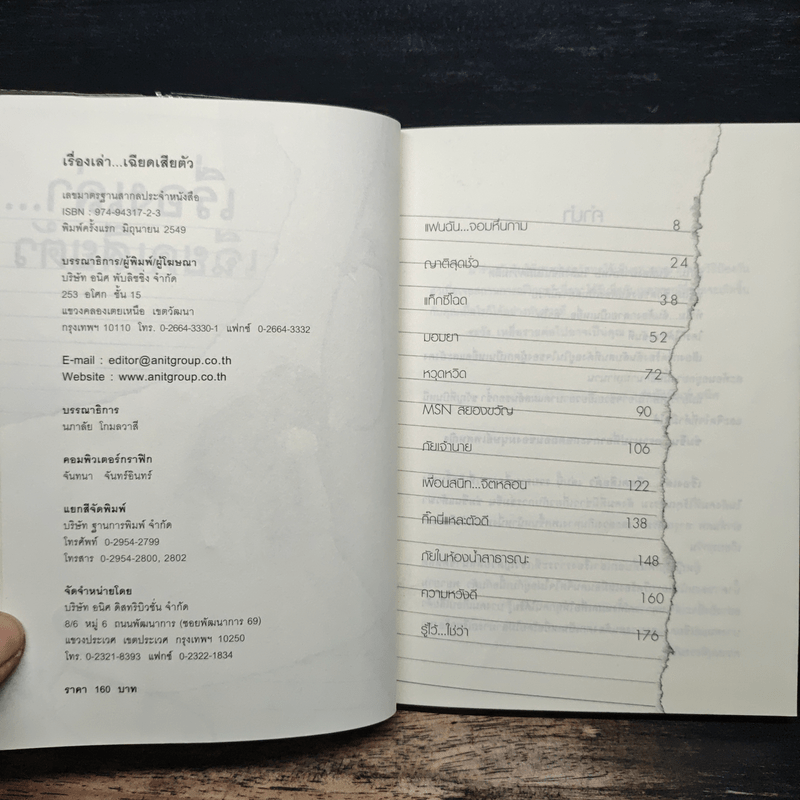 เรื่องเล่า...เฉียดเสียตัว
เลขมาตรฐานสากลประจำหนังสือ
ISBN : 974-94317-2-3
พิมพ์ครั้งแรก มิถุนายน 2549
บรรณาธิการ/ผู้พิมพ์/ผู้โฆษณา
บริษัท อนิศ พับลิชชิ่ง จำกัด
253 อโศก ชั้น 15
แขวงคลองเตยเหนือ เขตวัฒนา
กรุงเทพฯ 10110 โทร. 0-2664-3330-1 แฟกซ์ 0-2664-3332
E-mail : editor@anitgroup.co.th
Website : www.anitgroup.co.th
บรรณาธิการ
นภาลัย โกมลวาสี
คอมพิวเตอร์กราฟิก
จันทนา จันทร์อินทร์
แยกสีจัดพิมพ์
บริษัท ฐานการพิมพ์ จำกัด
โทรศัพท์ 0-2954-2799
โทรสาร 0-2954-2800, 2802
จัดจำหน่ายโดย
บริษัท อนิศ ดิสทริบิวชั่น จำกัด
8/6 หมู่ 6 ถนนพัฒนาการ (ซอยพัฒนาการ 69)
แขวงประเวศ เขตประเวศ กรุงเทพฯ 10250
โทร. 0-2321-8393 แฟกซ์ 0-2322-1834
ราคา 160 บาท
แฟนฉัน...จอมหื่นกาม 8
ญาติสุดชั่ว 24
แท็กซี่โฉด 38
มอมยา 52
หวุดหวิด 72
MSN สยองขวัญ 90
ภัยเจ้านาย 106
เพื่อนสนิท...จิตหลอน 122
กิ๊กนี่แหละตัวดี 138
ภัยในห้องน้ำสาธารณะ 148
ความหวังดี 160
รู้ไว้...ใช่ว่า 176